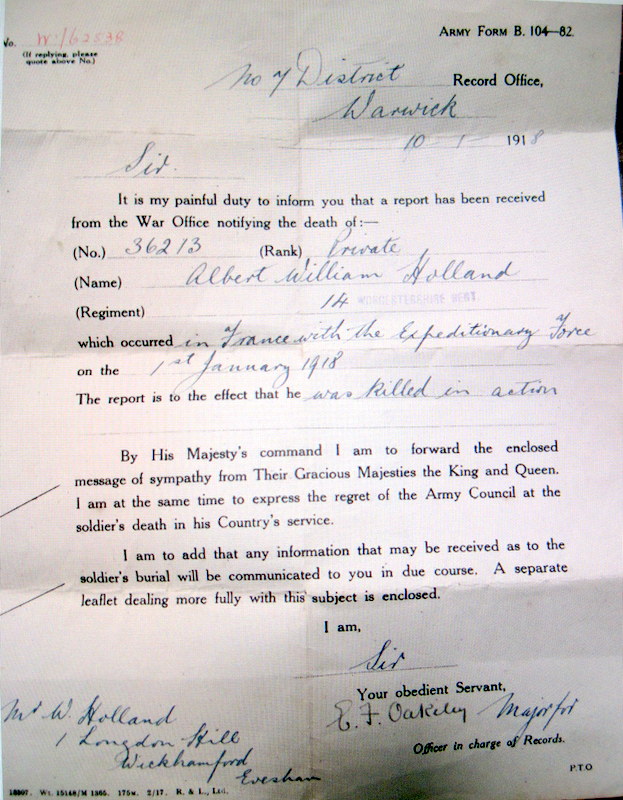 ARMY FORM B. 104—82.
No. W:/62538
(If replying, please
quote above No.)
No 7 District Record Office,
Warwick
10 1 1918
Sir.
It is my painful duty to inform you that a report has been received
from the War Office notifying the death of:—
(No.) 36213 (Rank) Private
(Name) Albert William Holland
(Regiment) 14 WORCESTERSHIRE REGT.
which occurred in France with the Expeditionary Force
on the 1st January 1918
The report is to the effect that he was killed in action
By His Majesty's command I am to forward the enclosed
message of sympathy from Their Gracious Majesties the King and Queen.
I am at the same time to express the regret of the Army Council at the
soldier's death in his Country's service.
I am to add that any information that may be received as to the
soldier's burial will be communicated to you in due course. A separate
leaflet dealing more fully with this subject is enclosed.
I am,
Sir
Your obedient Servant,
E. F. Oakeley Major for
Officer in charge of Records.
Mr W. Holland
1 Longdon Hill
Wickhamford
Evesham
P.T.O.
18897. Wt. 15148/M 1365. 175M. 2/17. R. & L., Ltd.